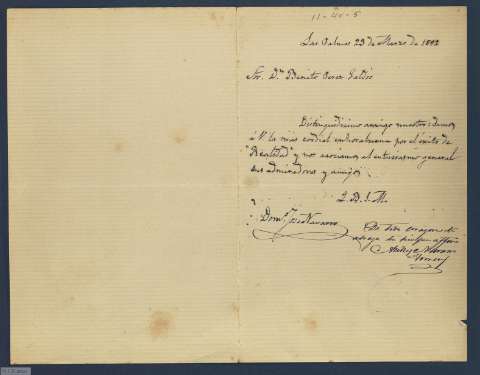 11-20-5
Las Palmas 23 de Marzo de 1892
Sr. Dn. Benito Perez Galdós
Distinguidísimo amigo nuestro: damos
á V. la más cordial enhorabuena por el éxito de
"Realidad" y nos asociamos al entusiasmo general
sus admiradores y amigos
Q. B. S. M.
Domº José Navarro
De todo corazon le
abraza su